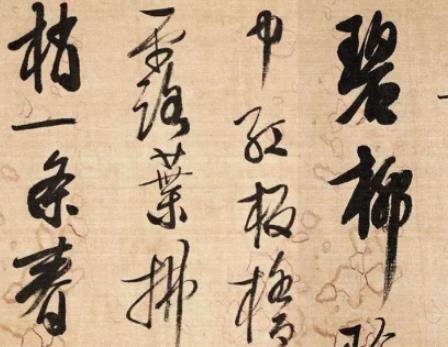 碧柳
中紅板橋
露葉拂
梢一条春